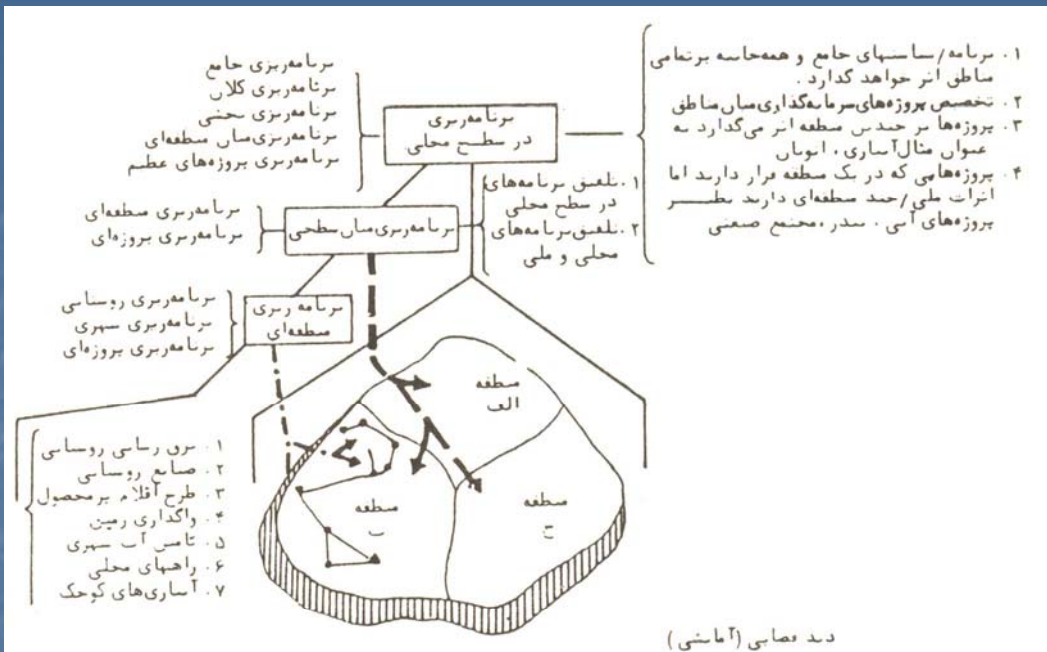 برنامه‌ریزی جامع
برنامه‌ریزی کلان
برنامه‌ریزی بخشی
برنامه‌ریزی میان منطقه‌ای
برنامه‌ریزی پروژه‌های عظیم
برنامه‌ریزی
در سطح محلی
۱. برنامه/سیاستهای جامع و همه‌جانبه برتمامی
مناطق اثر خواهد گذارد.
۲. تخصیص پروژه‌های سرمایه‌گذاری میان مناطق
۳. پروژه‌ها بر چندین منطقه اثر می‌گذارد به
عنوان مثال آبیاری، اتوبان
۴. پروژه‌هایی که در یک منطقه قرار دارند اما
اثرات ملی/چند منطقه‌ای دارند نظیر
پروژه‌های آبی، بندر، مجتمع صنعتی
برنامه‌ریزی منطقه‌ای
برنامه‌ریزی پروژه‌ای
برنامه‌ریزی میان سطحی
۱. تلفیق برنامه‌های
در سطح محلی
۲. تلفیق برنامه‌های
محلی و ملی
برنامه‌ریزی روستایی
برنامه‌ریزی شهری
برنامه‌ریزی پروژه‌ای
برنامه ریزی
منطقه‌ای
منطقه
الف
منطقه
ب
منطقه
ج
۱. برق رسانی روستایی
۲. صنایع روستایی
۳. طرح اقلام پرمحصول
۴. واگذاری زمین
۵. تامین آب شهری
۶. راههای محلی
۷. آبیاری‌های کوچک
دید فضایی (آمایشی)